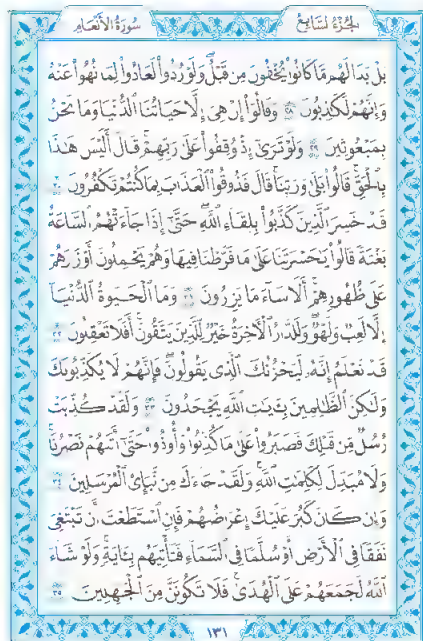 الجزء السابع
سورة الأنعام
بَلْ بَدَا لَهُم مَّا كَانُوا۟ يُخْفُونَ مِن قَبْلُ ۖ وَلَوْ رُدُّوا۟ لَعَادُوا۟ لِمَا نُهُوا۟ عَنْهُ
وَإِنَّهُمْ لَكَـٰذِبُونَ ٢٨ وَقَالُوٓا۟ إِنْ هِىَ إِلَّا حَيَاتُنَا ٱلدُّنْيَا وَمَا نَحْنُ
بِمَبْعُوثِينَ ٢٩ وَلَوْ تَرَىٰٓ إِذْ وُقِفُوا۟ عَلَىٰ رَبِّهِمْ ۚ قَالَ أَلَيْسَ هَـٰذَا
بِٱلْحَقِّ ۚ قَالُوا۟ بَلَىٰ وَرَبِّنَا ۚ قَالَ فَذُوقُوا۟ ٱلْعَذَابَ بِمَا كُنتُمْ تَكْفُرُونَ ٣٠
قَدْ خَسِرَ ٱلَّذِينَ كَذَّبُوا۟ بِلِقَآءِ ٱللَّهِ ۖ حَتَّىٰٓ إِذَا جَآءَتْهُمُ ٱلسَّاعَةُ
بَغْتَةً قَالُوا۟ يَـٰحَسْرَتَنَا عَلَىٰ مَا فَرَّطْنَا فِيهَا وَهُمْ يَحْمِلُونَ أَوْزَارَهُمْ
عَلَىٰ ظُهُورِهِمْ ۚ أَلَا سَآءَ مَا يَزِرُونَ ٣١ وَمَا ٱلْحَيَوٰةُ ٱلدُّنْيَآ
إِلَّا لَعِبٌ وَلَهْوٌ ۖ وَلَلدَّارُ ٱلْـَٔاخِرَةُ خَيْرٌ لِّلَّذِينَ يَتَّقُونَ ۗ أَفَلَا تَعْقِلُونَ ٣٢
قَدْ نَعْلَمُ إِنَّهُۥ لَيَحْزُنُكَ ٱلَّذِى يَقُولُونَ ۖ فَإِنَّهُمْ لَا يُكَذِّبُونَكَ
وَلَـٰكِنَّ ٱلظَّـٰلِمِينَ بِـَٔايَـٰتِ ٱللَّهِ يَجْحَدُونَ ٣٣ وَلَقَدْ كُذِّبَتْ
رُسُلٌ مِّن قَبْلِكَ فَصَبَرُوا۟ عَلَىٰ مَا كُذِّبُوا۟ وَأُوذُوا۟ حَتَّىٰٓ أَتَىٰهُمْ نَصْرُنَا ۚ
وَلَا مُبَدِّلَ لِكَلِمَـٰتِ ٱللَّهِ ۚ وَلَقَدْ جَآءَكَ مِن نَّبَإِى۟ ٱلْمُرْسَلِينَ ٣٤
وَإِن كَانَ كَبُرَ عَلَيْكَ إِعْرَاضُهُمْ فَإِنِ ٱسْتَطَعْتَ أَن تَبْتَغِىَ
نَفَقًا فِى ٱلْأَرْضِ أَوْ سُلَّمًا فِى ٱلسَّمَآءِ فَتَأْتِيَهُم بِـَٔايَةٍ ۚ وَلَوْ شَآءَ
ٱللَّهُ لَجَمَعَهُمْ عَلَى ٱلْهُدَىٰ ۚ فَلَا تَكُونَنَّ مِنَ ٱلْجَـٰهِلِينَ ٣٥
١٣١